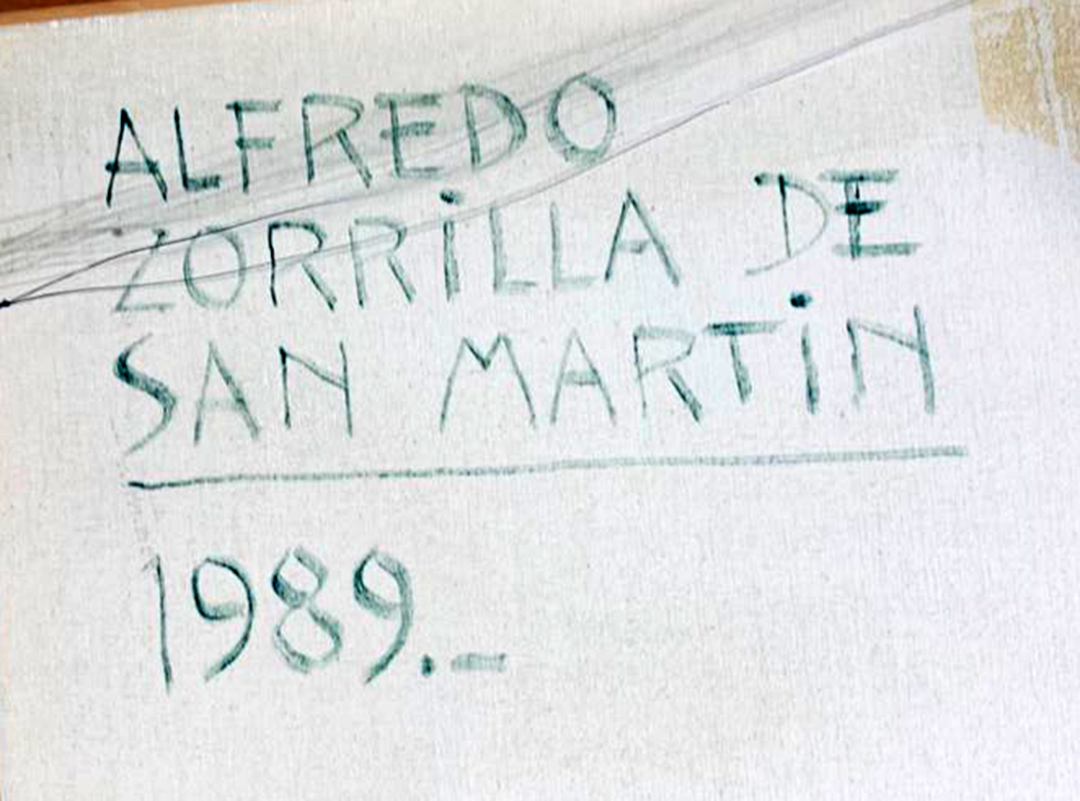 ALFREDO
ZORRiLLA DE
SAN MARTiN
1989.-